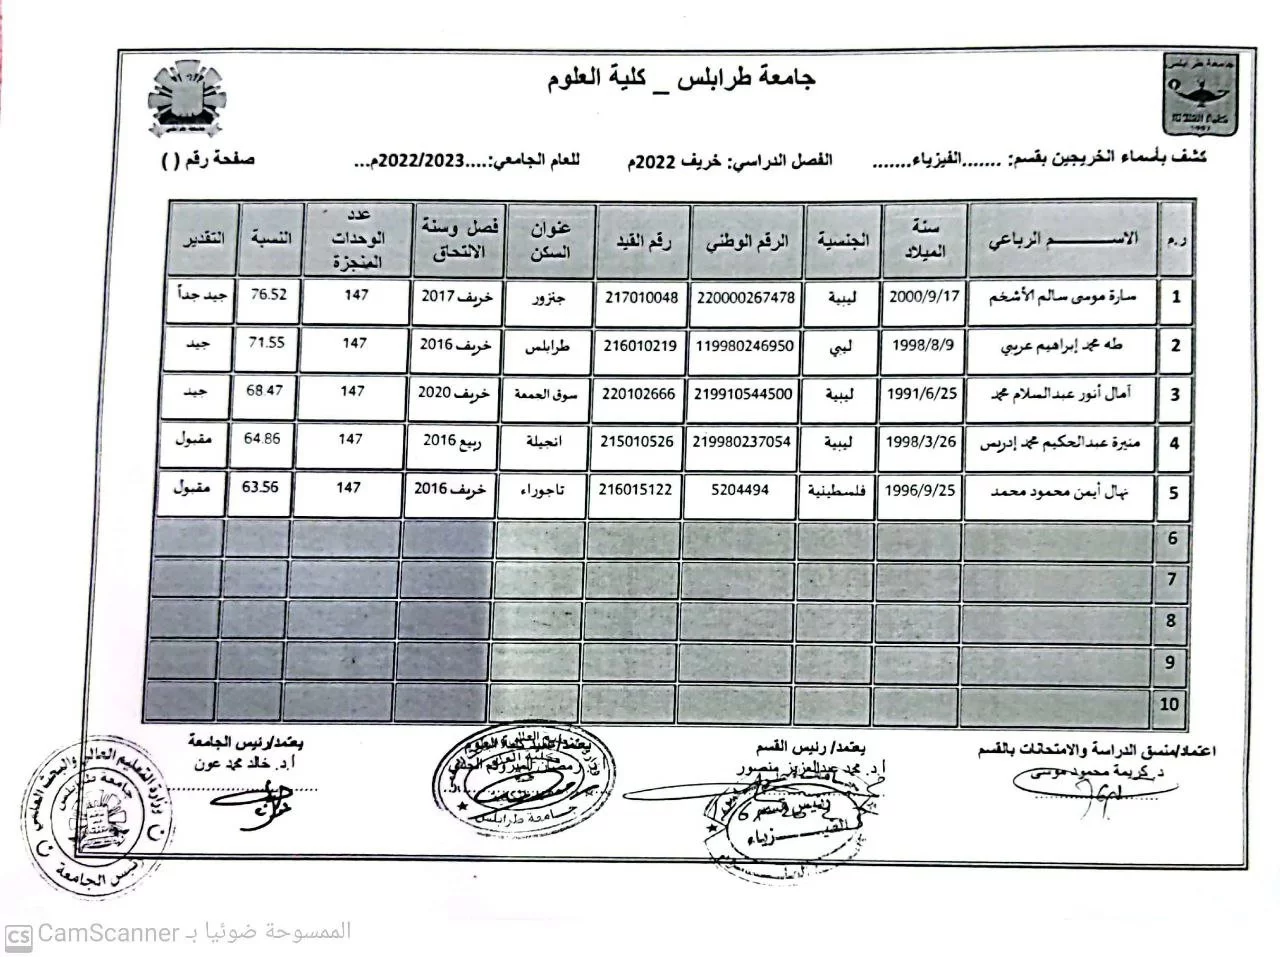 جامعة طرابلس _ كلية العلوم
كشف بأسماء الخريجين بقسم: .......الفيزياء....... الفصل الدراسي: خريف 2022م للعام الجامعي:....2022/2023م... صفحة رقم ( )
ر.م الاســــــم الرباعي سنة الميلاد الجنسية الرقم الوطني رقم القيد عنوان السكن فصل وسنة الالتحاق عدد الوحدات المنجزة النسبة التقدير
1 سارة موسى سالم الأشخم 2000/9/17 ليبية 220000267478 217010048 جنزور خريف 2017 147 76.52 جيد جداً
2 طه محمد إبراهيم عريبي 1998/8/9 ليبي 119980246950 216010219 طرابلس خريف 2016 147 71.55 جيد
3 آمال أنور عبدالسلام محمد 1991/6/25 ليبية 219910544500 220102666 سوق الجمعة خريف 2020 147 68.47 جيد
4 منيرة عبدالحكيم محمد إدريس 1998/3/26 ليبية 219980237054 215010526 انجيلة ربيع 2016 147 64.86 مقبول
5 نهال أيمن محمود محمد 1996/9/25 فلسطينية 5204494 216015122 تاجوراء خريف 2016 147 63.56 مقبول
6
7
8
9
10
اعتماد/منسق الدراسة والامتحانات بالقسم
د. كريمة محمود موسى
يعتمد/ رئيس القسم
أ.د. محمد عبدالعزيز منصور
رئيس قسم
الفيـــزياء
يعتمد/عميد كلية العلوم
جامعة طرابلس
يعتمد/رئيس الجامعة
أ.د. خالد محمد عون
وزارة التعليم العالي والبحث العلمي
جامعة طرابلس
رئيس الجامعة
CS CamScanner الممسوحة ضوئيا بـ